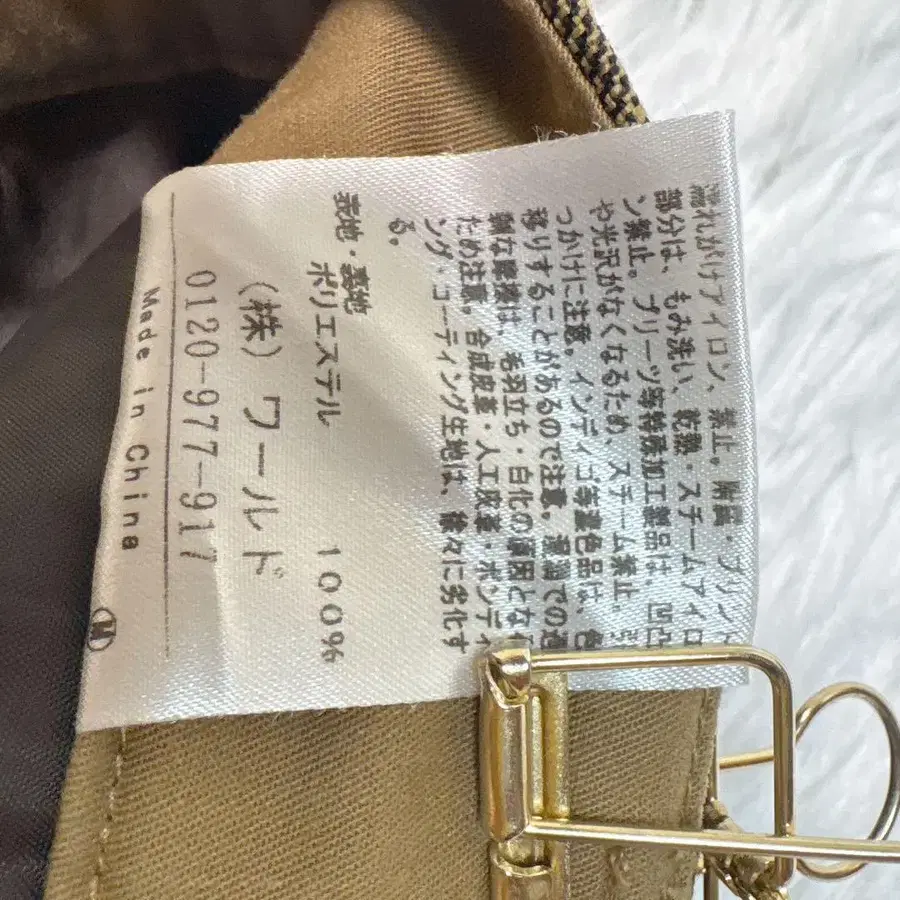 濡れがけアイロン、禁止。附属・プリント
部分は、もみ洗い、乾熱・スチームアイロ
ン禁止。プリーツ等特殊加工製品は、凹凸
や光沢がなくなるため、スチーム禁止。引
っかけに注意。インディゴ等濃色品は、色
移りすることがあるので注意。湿潤での過
剰な摩擦は、毛羽立ち・白化の原因となる
ため注意。合成皮革・人工皮革・ボンディ
ング・コーティング生地は、徐々に劣化す
る。
表地・裏地
ポリエステル 100%
(株)ワールド
0120-977-917
Made in China
M